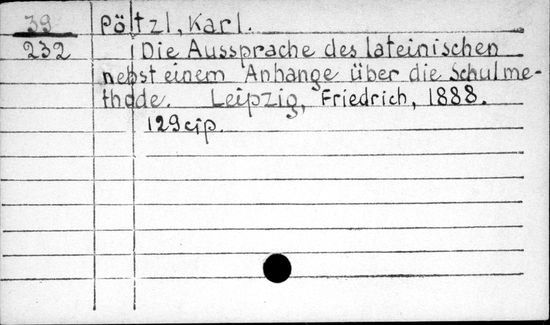 39 Pöltzl, Karl.
232 Die Aussprache des lateinischen
nebst einem Anhange über die Schulme-
thode. Leipzig, Friedrich, 1888.
129 с̄ip.